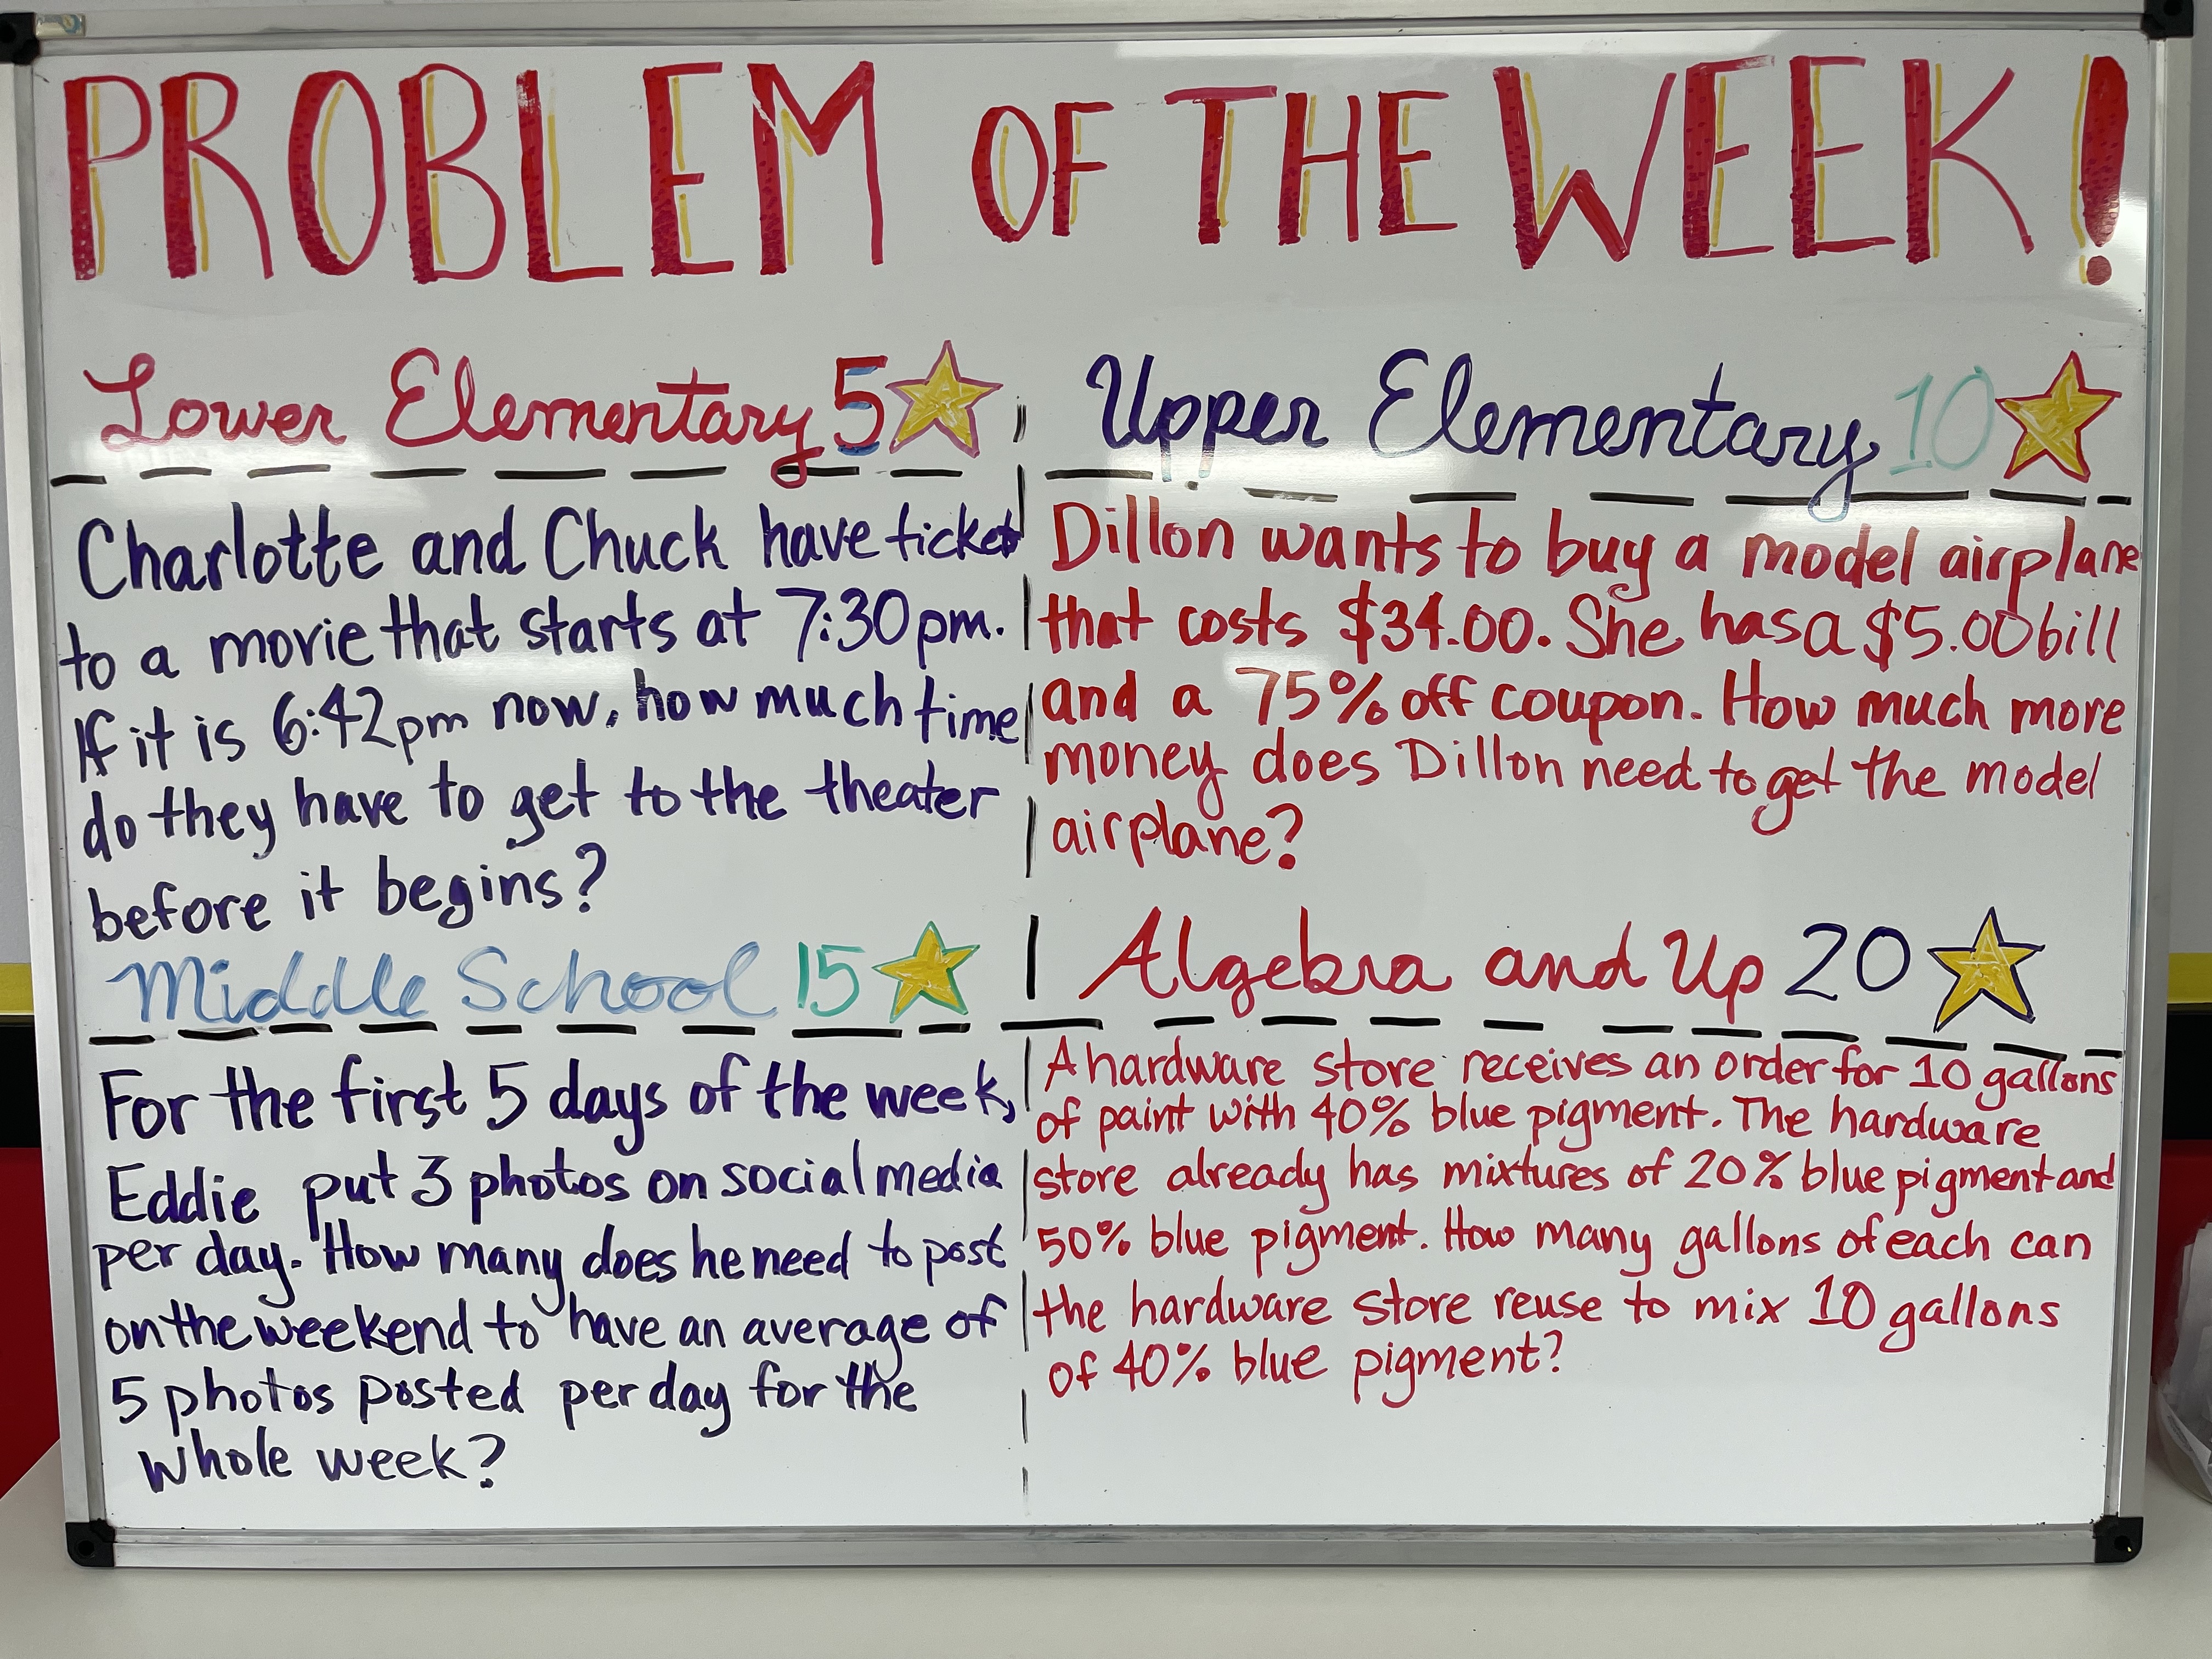 PROBLEM OF THE WEEK!
Lower Elementary 5
Charlotte and Chuck have ticket
to a movie that starts at 7:30pm.
If it is 6:42pm now, how much time
do they have to get to the theater
before it begins?
Upper Elementary 10
Dillon wants to buy a model airplane
that costs $34.00. She has a $5.00 bill
and a 75% off coupon. How much more
money does Dillon need to get the model
airplane?
Middle School 15
For the first 5 days of the week,
Eddie put 3 photos on social media
per day. How many does he need to post
on the weekend to have an average of
5 photos posted per day for the
whole week?
Algebra and Up 20
A hardware store receives an order for 10 gallons
of paint with 40% blue pigment. The hardware
store already has mixtures of 20% blue pigment and
50% blue pigment. How many gallons of each can
the hardware store reuse to mix 10 gallons
of 40% blue pigment?